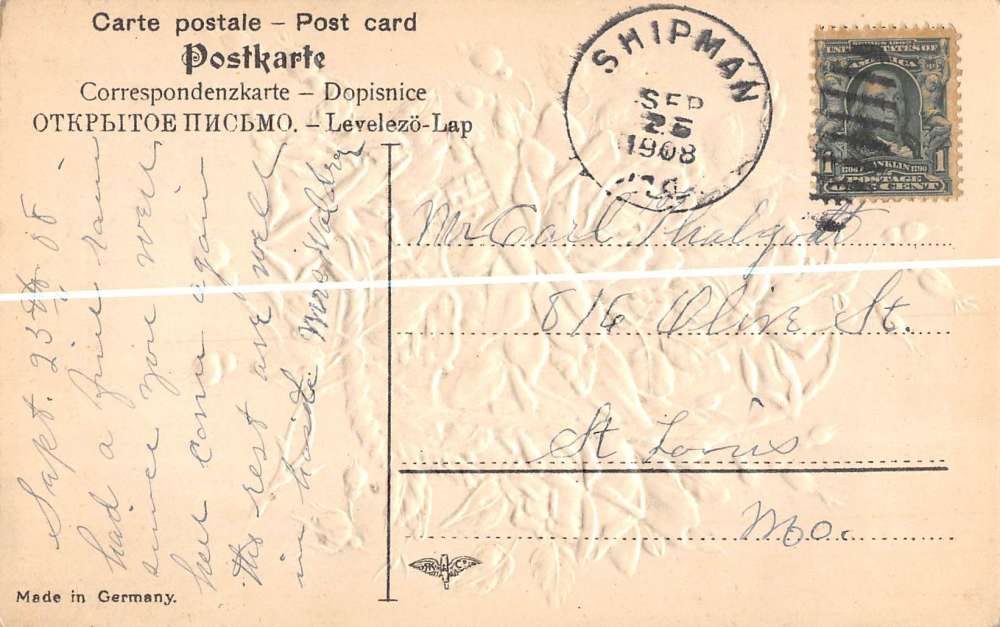 Carte postale – Post card
Postkarte
Correspondenzkarte – Dopisnice
ОТКРЫТОЕ ПИСЬМО. – Levelező-Lap
SHIPMAN
SEP
25
1908
UNITED STATES OF
AMERICA
1 FRANKLIN 1
POSTAGE
ONE CENT
Mr Carl
816 Olive St.
St Louis
Mo.
Sept. 25th 08
had a fine rain
since you were
here come again
the rest are well
in haste Mrs
Made in Germany.